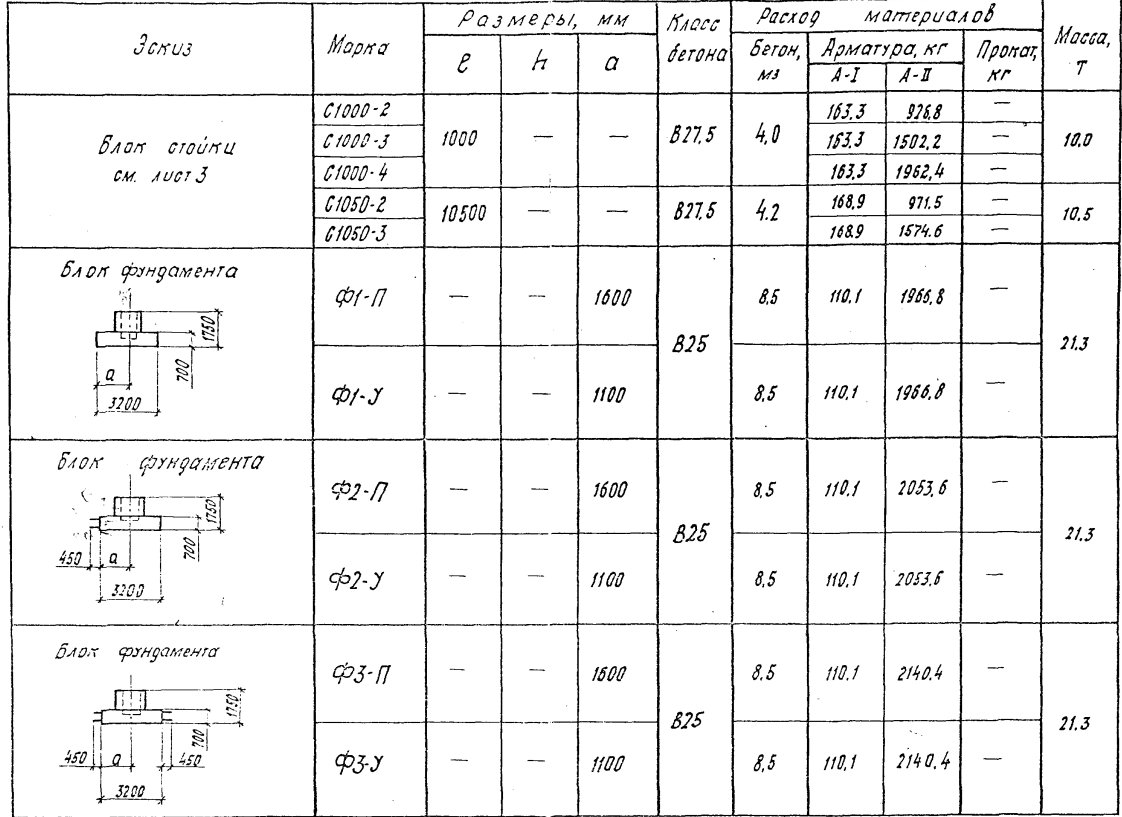 Эскиз Марка Размеры, мм Класс бетона Расход материалов Масса, т
ℓ h a Бетон, м3 Арматура, кг Прокат, кг
А-I А-II
Блок стойки см. лист 3
С1000-2 1000 — — В27,5 4,0 163,3 926,8 — 10.0
С1000-3 163.3 1502,2 —
С1000-4 163,3 1962,4 —
С1050-2 10500 — — В27,5 4.2 168,9 971.5 — 10.5
С1050-3 168.9 1574.6 —
Блок фундамента
1750
700
a
3200
Ф1-П — — 1600 В25 8.5 110,1 1966,8 — 21.3
Ф1-У — — 1100 8,5 110,1 1966,8 —
Блок фундамента
1750
700
450 a
3200
Ф2-П — — 1600 В25 8,5 110,1 2053,6 — 21.3
Ф2-У — — 1100 8,5 110,1 2053,6 —
Блок фундамента
1750
700
450 a 450
3200
Ф3-П — — 1600 В25 8.5 110,1 2140.4 — 21.3
Ф3-У — — 1100 8,5 110,1 2140,4 —